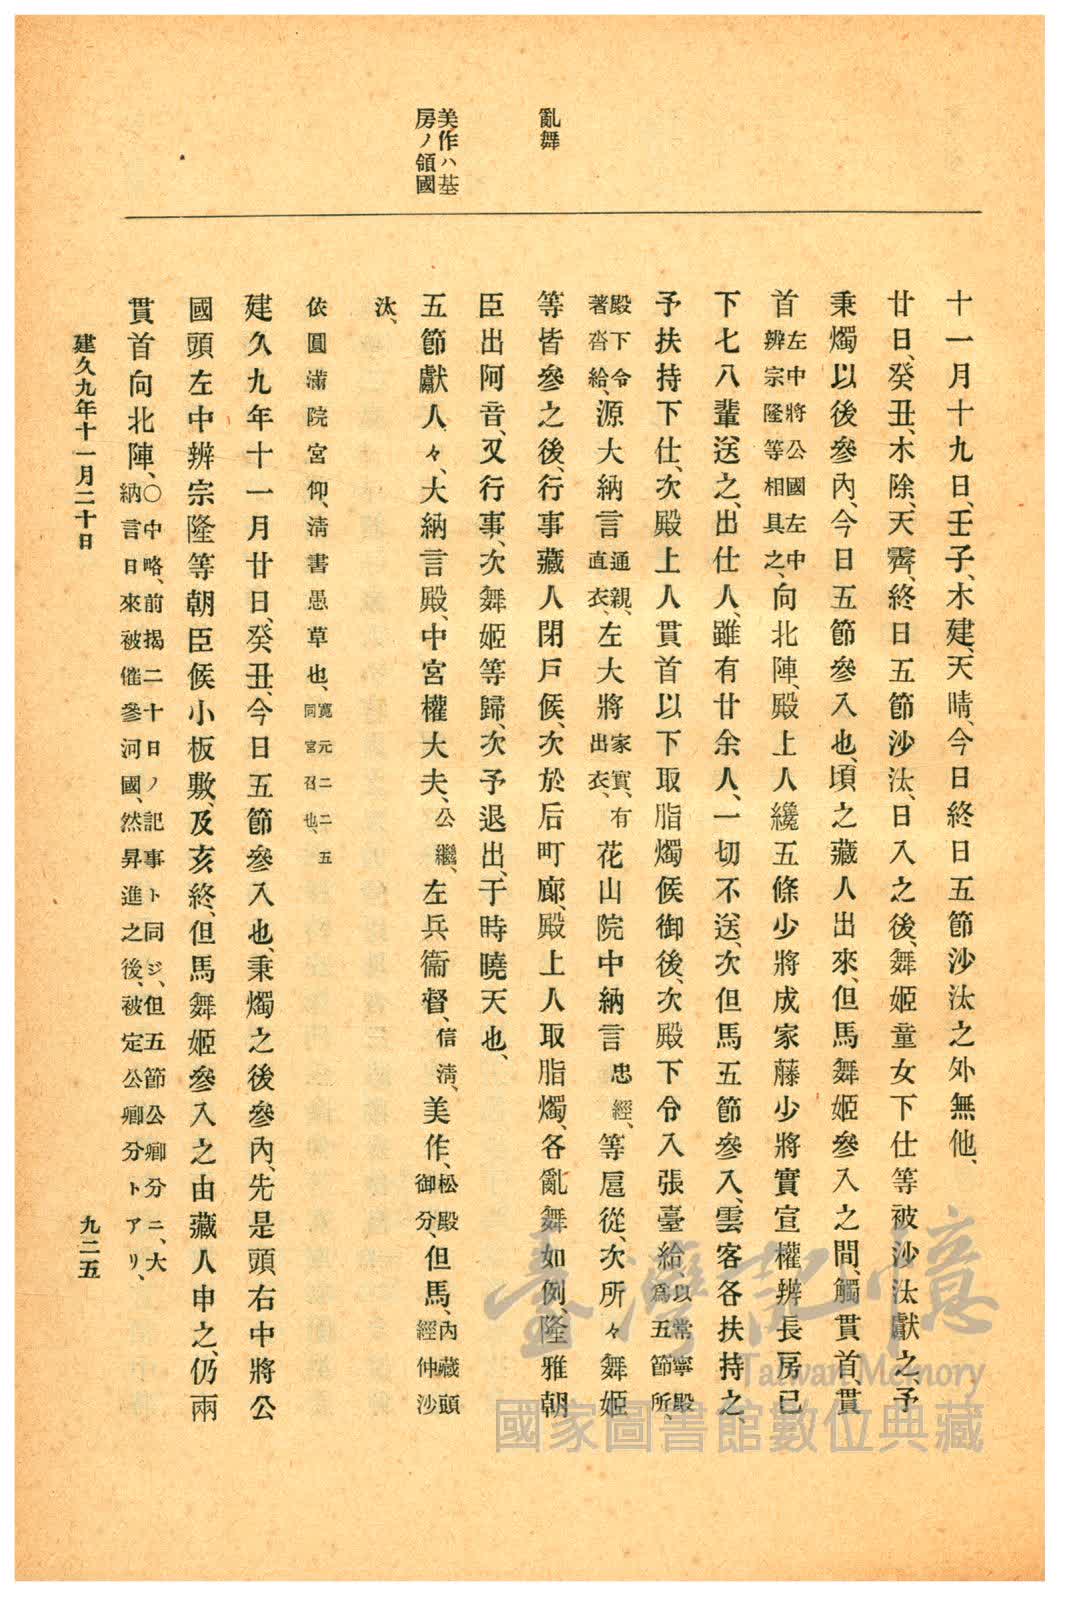 亂舞
美作ハ基
房ノ領國
十一月十九日、壬子、木建、天晴、今日終日五節沙汰之外無他、
廿日、癸丑、木除、天霽、終日五節沙汰、日入之後、舞姬童女下仕等被沙汰獻之、予
秉燭以後參內、今日五節參入也、頃之藏人出來、但馬舞姬參入之間、觸貫首、貫
首左中將公國左中辨宗隆等相具之、向北陣、殿上人纔五條少將成家藤少將實宣權辨長房已
下七八輩送之、出仕人、雖有廿余人、一切不送、次但馬五節參入、雲客各扶持之、
予扶持下仕、次殿上人貫首以下取脂燭候御後、次殿下令入張臺給、以常寧殿爲五節所、
殿下令著沓給、源大納言通親、直衣、左大將家實、有出衣、花山院中納言忠經、等扈從、次所々舞姬
等皆參之後、行事藏人閉戶候、次於后町廊、殿上人取脂燭、各亂舞如例、隆雅朝
臣出阿音、又行事、次舞姬等歸、次予退出、于時曉天也、
五節獻人々、大納言殿、中宮權大夫、公繼、左兵衞督、信淸、美作、松殿御分、但馬、內藏頭經仲沙
汰、
依圓滿院宮仰、淸書愚草也、寬元二二五同宮召也、
建久九年十一月廿日、癸丑、今日五節參入也、秉燭之後參內、先是頭右中將公
國頭左中辨宗隆等朝臣候小板敷、及亥終、但馬舞姬參入之由藏人申之、仍兩
貫首向北陣、〇中略、前揭二十日ノ記事ト同ジ、但五節公卿分ニ、大納言日來被催參河國、然昇進之後、被定公卿分トアリ、
建久九年十一月二十日
九二五
臺灣記憶
Taiwan Memory
國家圖書館數位典藏